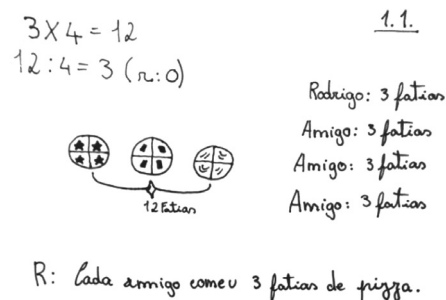 3X4=12
12:4=3 (r:0)
1.1.
Rodrigo: 3 fatias
Amigo: 3 fatias
Amigo: 3 fatias
Amigo: 3 fatias
12 Fatias
R: Cada amigo comeu 3 fatias de pizza.